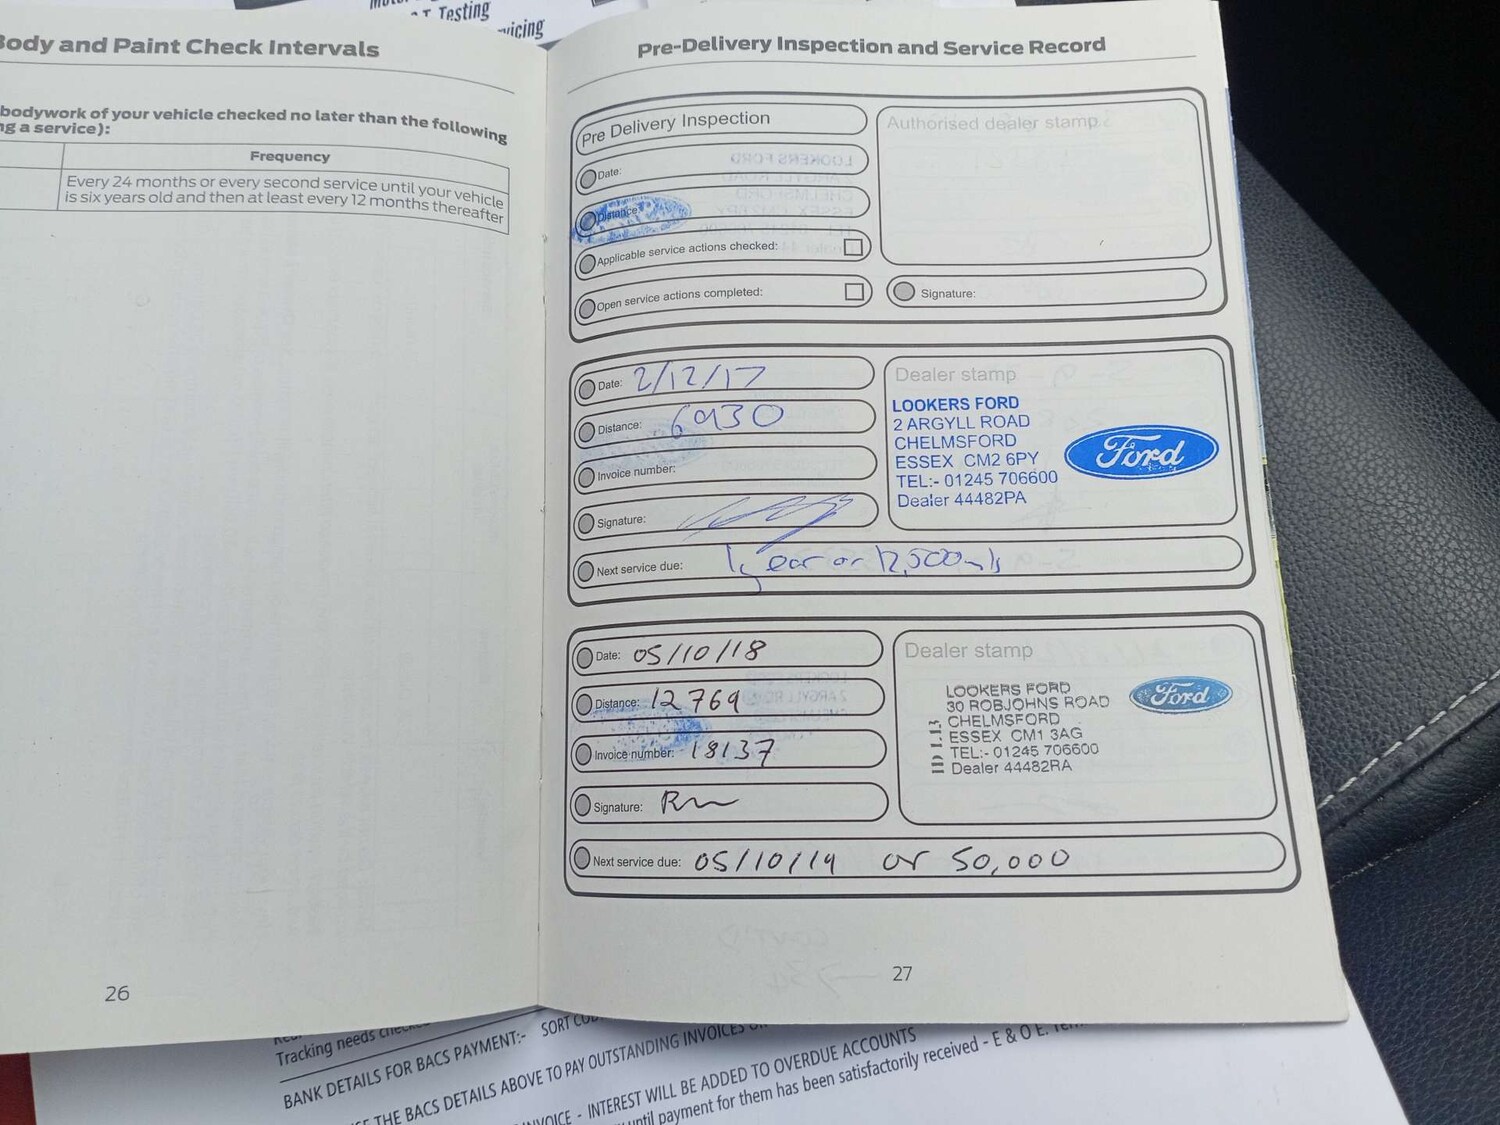 T Testing
vicing
Body and Paint Check Intervals
bodywork of your vehicle checked no later than the following
ng a service):
Frequency
Every 24 months or every second service until your vehicle
is six years old and then at least every 12 months thereafter
26
Pre-Delivery Inspection and Service Record
Pre Delivery Inspection
Date:
Distance:
Applicable service actions checked:
Open service actions completed:
Authorised dealer stamp
Signature:
Date: 2/12/17
Distance: 6930
Invoice number:
Signature:
Next service due: 1 year or 12,500 mls
Dealer stamp
LOOKERS FORD
2 ARGYLL ROAD
CHELMSFORD
ESSEX CM2 6PY
TEL:- 01245 706600
Dealer 44482PA
Ford
Date: 05/10/18
Distance: 12769
Invoice number: 18137
Signature:
Next service due: 05/10/19 or 50,000
Dealer stamp
LOOKERS FORD
30 ROBJOHNS ROAD
CHELMSFORD
ESSEX CM1 3AG
TEL:- 01245 706600
Dealer 44482RA
Ford
27
Tracking needs
BANK DETAILS FOR BACS PAYMENT:- SORT
THE BACS DETAILS ABOVE TO PAY OUTSTANDING INVOICES
INVOICE - INTEREST WILL BE ADDED TO OVERDUE ACCOUNTS
until payment for them has been satisfactorily received - E & O E.